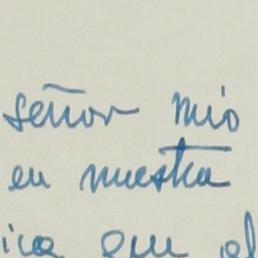 señor mio
en nuestra
ica que el